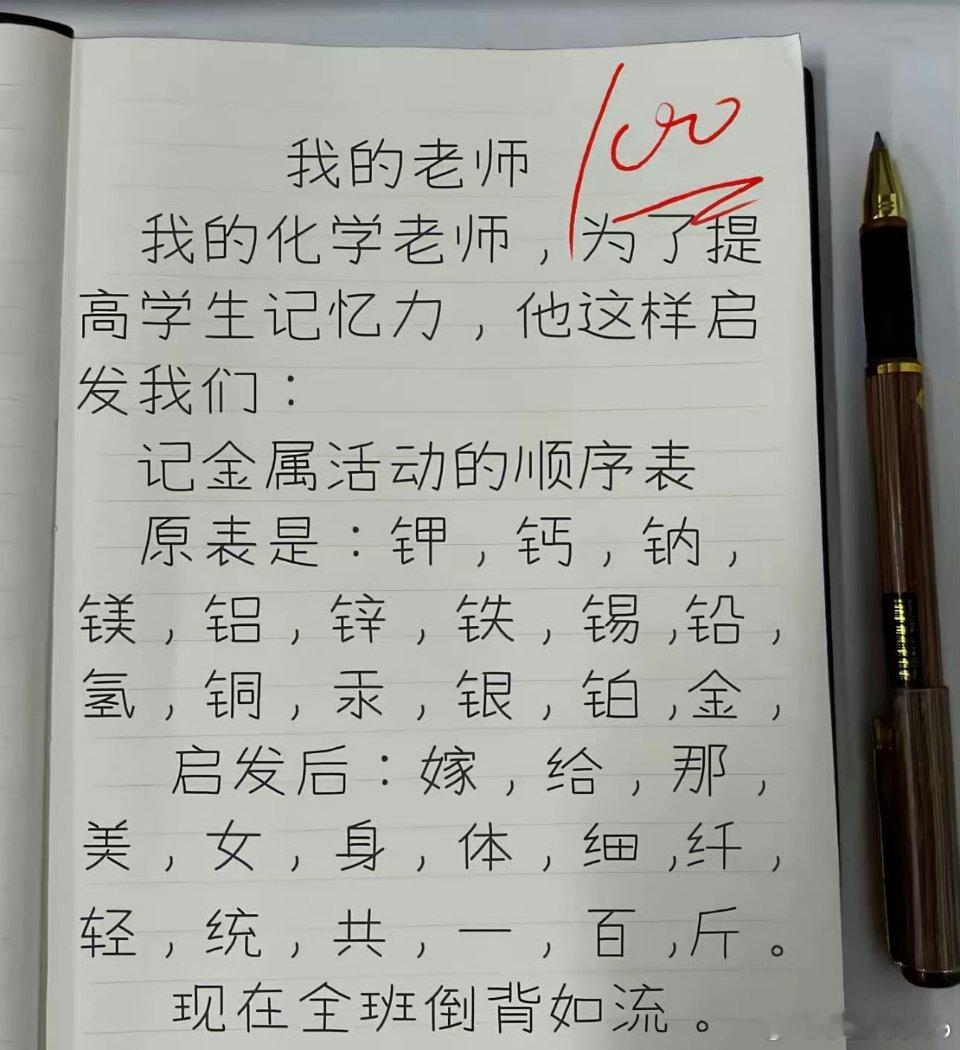 100
我的老师
我的化学老师，为了提
高学生记忆力，他这样启
发我们：
记金属活动的顺序表
原表是：钾，钙，钠，
镁，铝，锌，铁，锡,铅，
氢，铜，汞，银，铂,金，
启发后：嫁，给，那，
美，女，身，体，细,纤，
轻，统，共，一，百,斤。
现在全班倒背如流。